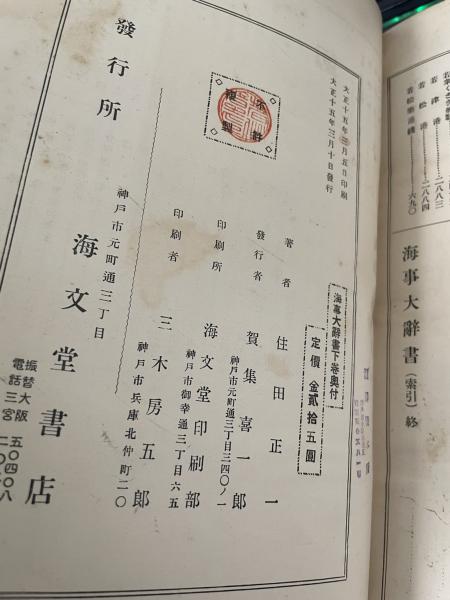 若津港 二八三
若松港 二八八四
若松築港綫 六九〇
海事大辭書 (索引) 終
海事大辭書下卷奧付
定價 金貳拾五圓
大正十五年三月五日印刷
大正十五年三月十日發行
不許複製
著者 住田正一
發行者 賀集喜一郎
神戸市元町通三丁目三四〇ノ一
印刷所 海文堂印刷部
神戸市御幸通三丁目六五
印刷者 三木房五郎
神戸市兵庫北仲町二〇
發行所 神戸市元町通三丁目 海文堂書店
振替大阪 五〇四〇八
電話三宮